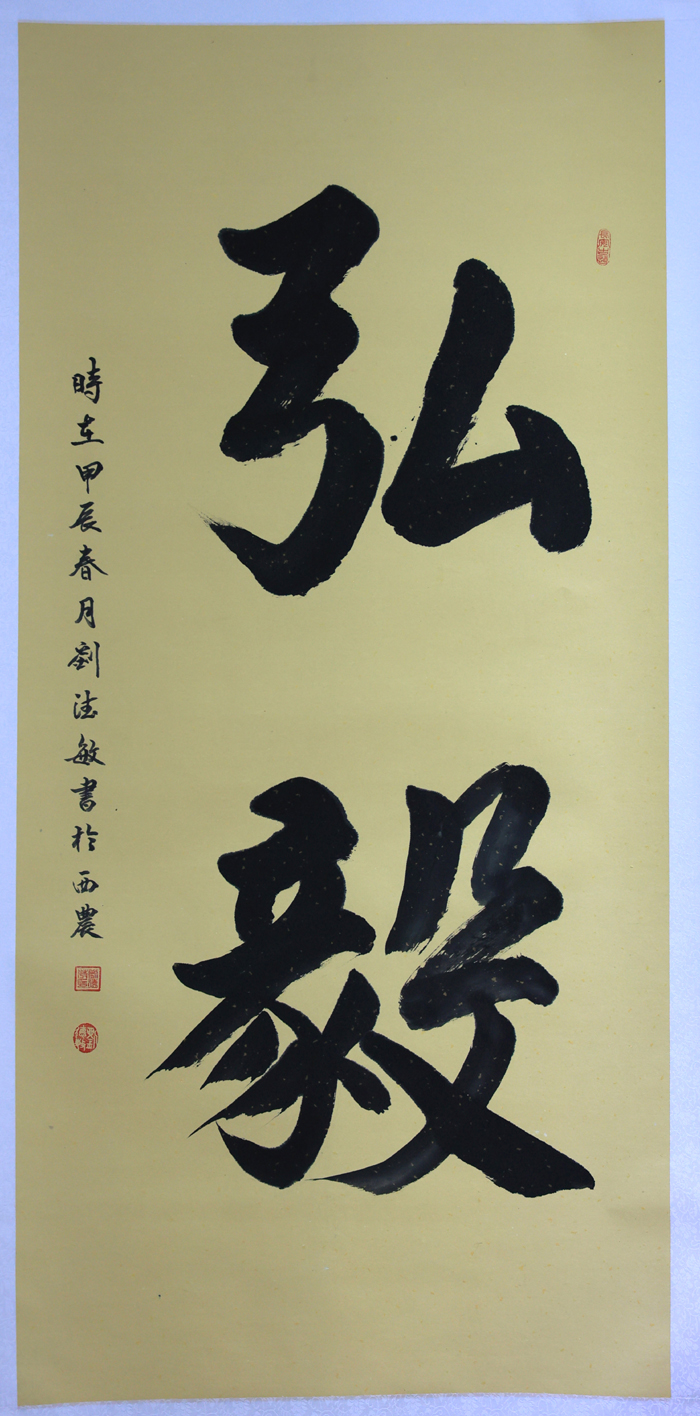 弘毅
時在甲辰春月劉德敏書於西農